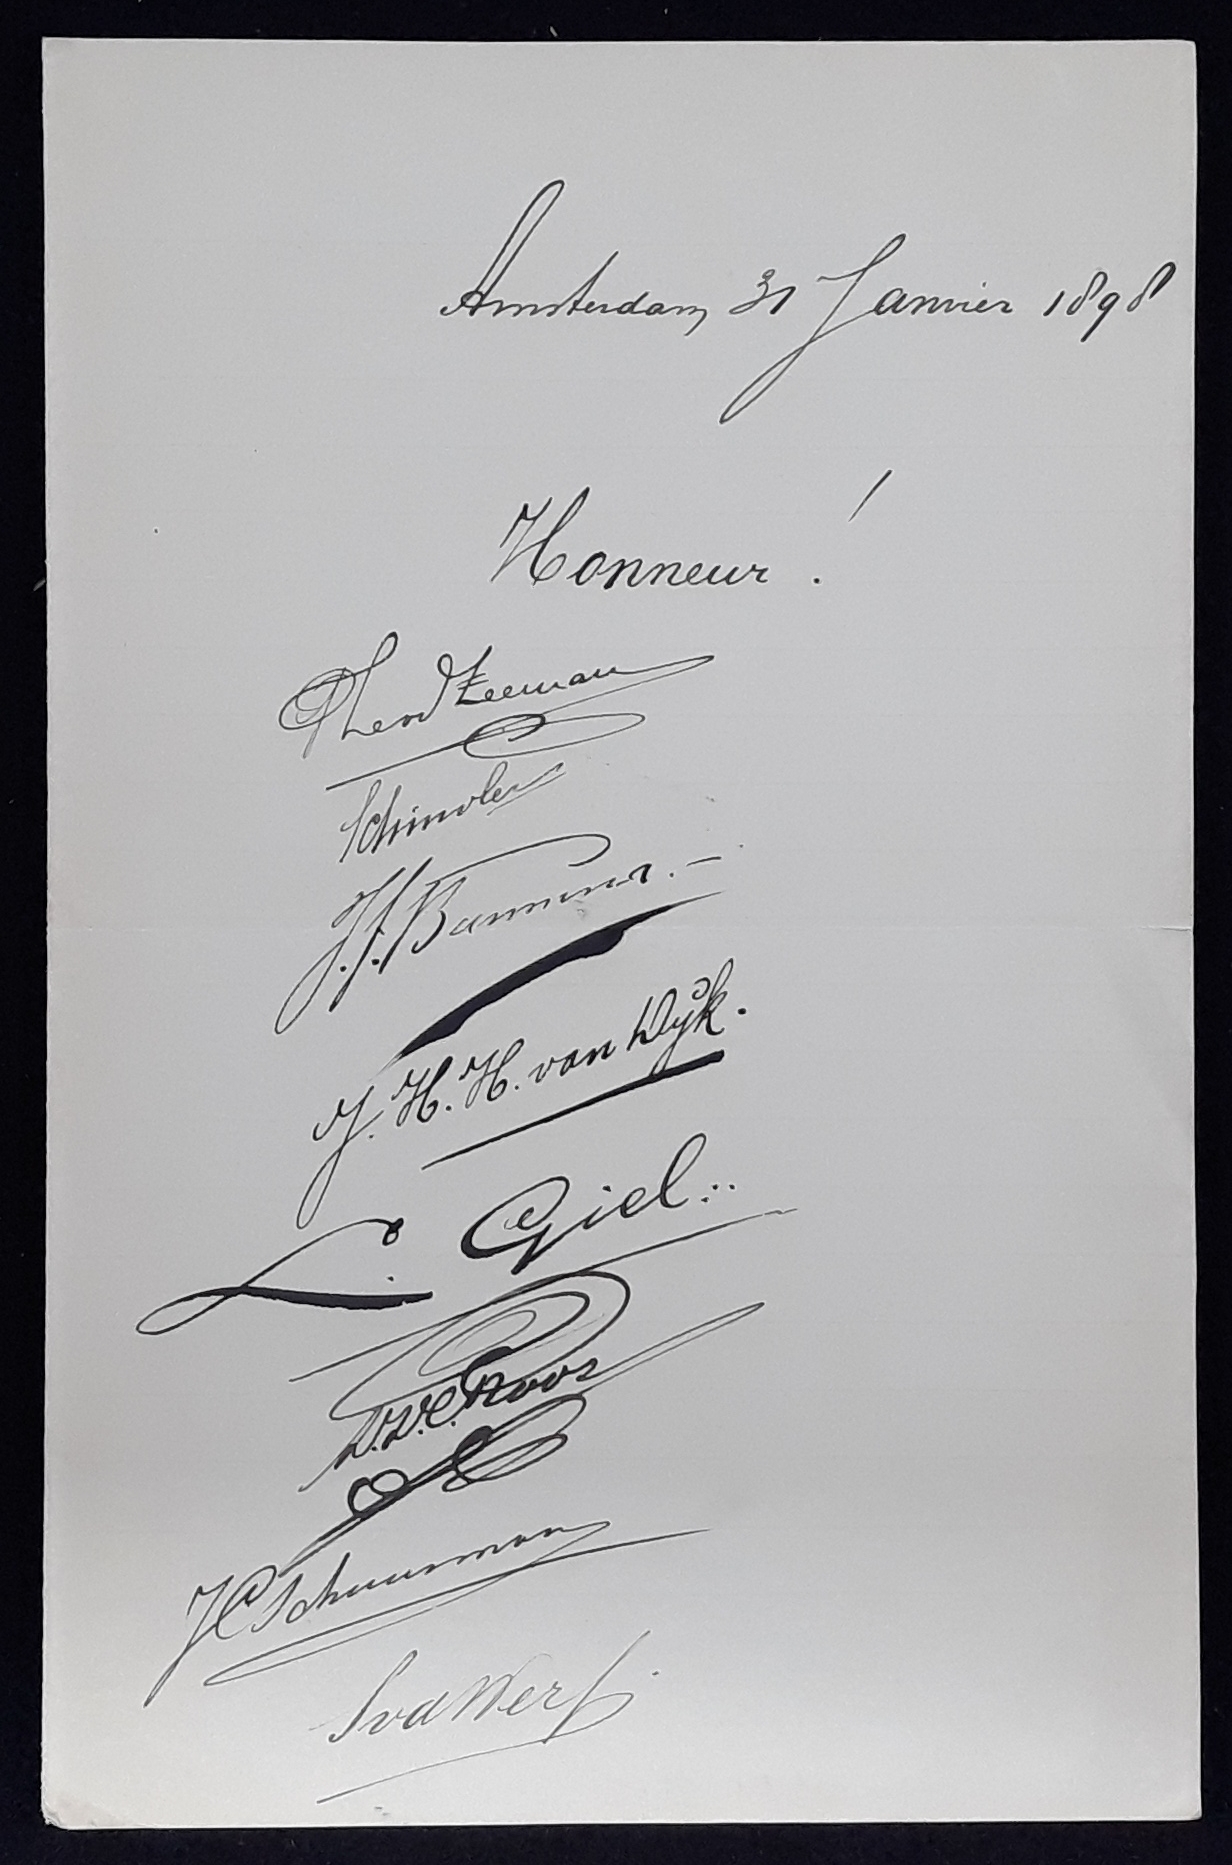 Amsterdam, 31 Janvier 1898
Honneur!
Zeeman
Schindler
J. J.
J. H. H. van Wijk.
L. Giel
Roos
J C Schuurman
S vd Werf